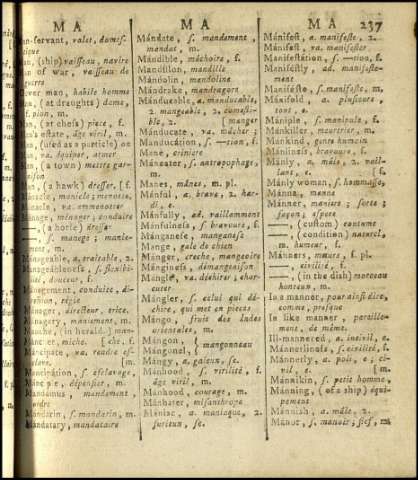 M A
M A
M A 237
-servant, valet, domes-
tique
(ship) vaisseau, navire
of war, vaisseau de
guerre
man, habile homme
(at draughts) dame,
f. pion, m.
(at chess) piece, f.
estate, âge viril, m.
(used as a particle) on
va. équiper, armer
(a town) mettre gar-
nison
(a hawk) dresser, [f.
manicle; menotte,
va. emmenotter
ménager; conduire
(a horse) dresser
s. manege; manie-
ment, m.
Mánageable, a. traitable, 2.
Mánageableness, s. flexibi-
lité, douceur, f.
Management, conduite, di-
rection, régie
directeur, trice.
maniment, m.
in herald.) man-
miche. [che, f.
Máncipate, va. rendre es-
clave. [m.
s. esclavage,
dépensier, m.
mandement,
ordre
Mándarin, s. mandarin, m.
Mandatary, mandataire
Mándate, s. mandement,
mandat, m.
Mándible, mâchoire, f.
Mandílion, mandille
Mándolin, mandoline
Mándrake, mandragore
Mánducable, a. manducable,
2. mangeable, 2. comesti-
ble, 2. [manger
Mánducate, va. mâcher;
Manducátion, s. —tion, f.
Mane, criniere
Máneater, s. antropophage,
m.
Manes, mânes, m. pl.
Mánful, a. brave, 2. har-
di, e.
Mánfully, ad. vaillamment
Mánfulness, s. bravoure, f.
Mánganese, manganese
Mange, gale de chien
Mánger, creche, mangeoire
Mánginess, démangeaison
Mangle, va. déchirer, char-
cuter
Mángler, s. celui qui dé-
chire, qui met en pieces
Mángo, fruit des Indes
orientales, m.
Mángon
Mángonel } mangonneau
Mángy, a. galeux, se.
Mánhood, s. virilité, f.
âge viril, m.
Mánhood, courage, m.
Mánhater, misanthrope
Mániac, a. maniaque, 2.
furieux, se.
Mánifest, a. manifeste, 2.
Mánifest, va. manifester
Manifestátion, s. —tion, f.
Mánifestly, ad. manifeste-
ment
Mánifesto, s. manifeste, m.
Mánifold, a. plusieurs,
tout, e.
Mániple, s. manipule, f.
Mánkiller, meurtrier, m.
Mankind, genre humain
Mánliness, bravoure, f.
Mánly, a. mâle, 2. vail-
lant, e. [f.
Mánly woman, s. hommasse,
Mánna, manne,
Mánner, maniere; sorte;
façon; espece
——, (custom) coutume
——, (condition) naturel,
m. humeur, f.
Mánners, mœurs, f. pl.
——, civilité, f.
——, (in the dish) morceau
honteux, m.
In a manner, pour ainsi dire,
comme, presque
In like manner, pareille-
ment, de même.
Ill-mannered, a. incivil, e.
Mánnerliness, s. civilité, f.
Mánnerly, a. poli, e; ci-
vil, e. [m.
Mánnikin, s. petit homme,
Mánning, (of a ship) équi-
pement
Mánnish, a. mâle, 2.
Mánor, s. manoir; fief, m.